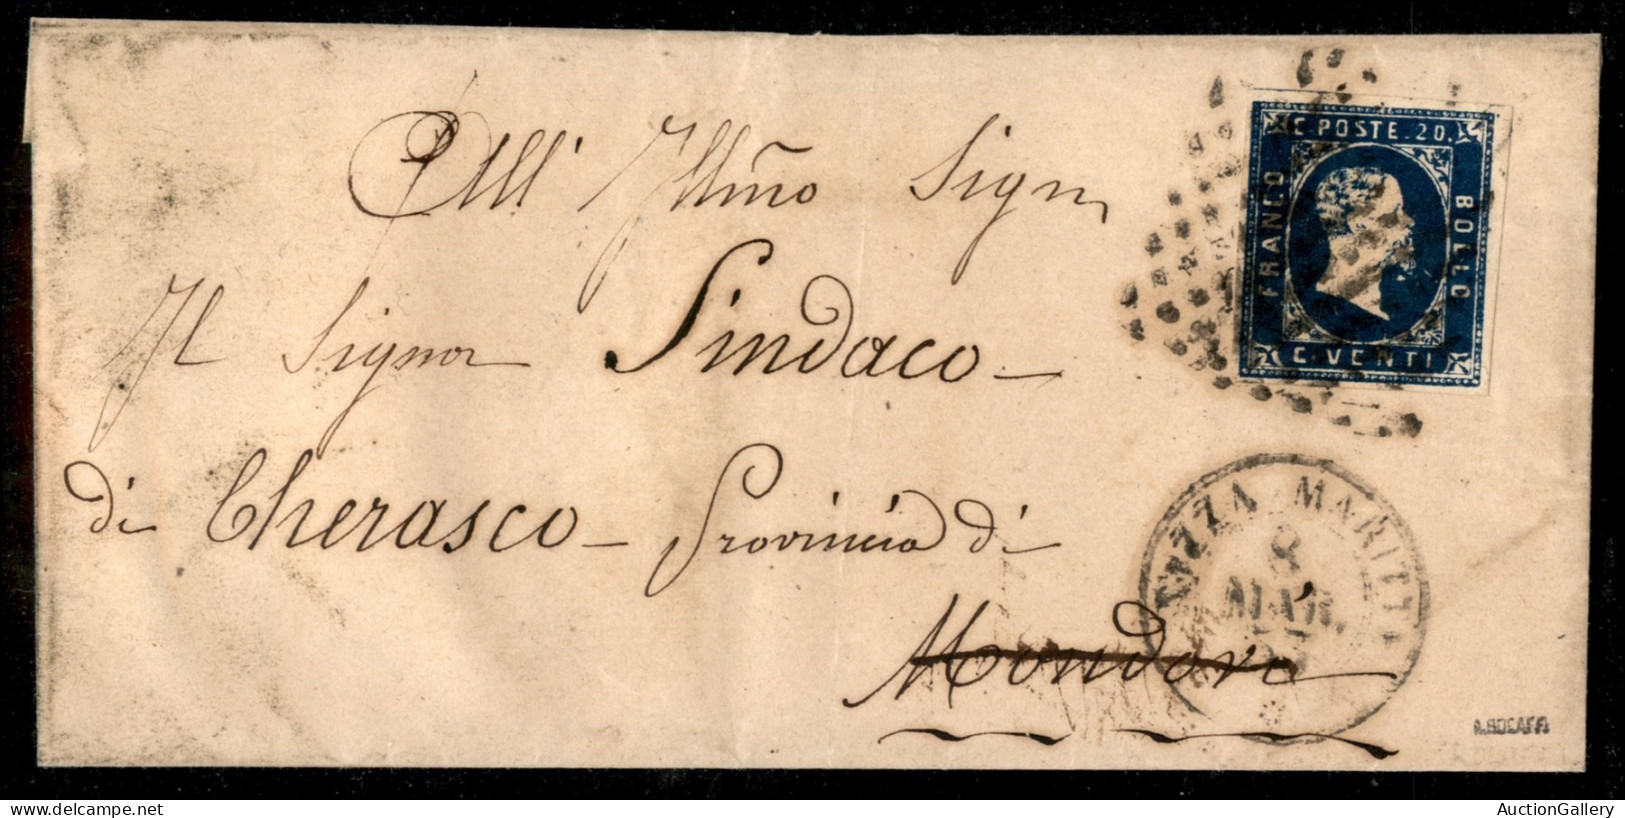 All' Illm̃o Sign
Il Signor Sindaco
di Cherasco - Provincia di
Mondovì
C. POSTE. 20.
FRANCO
BOLLO
C. VENTI
NIZZA MARITT
8
MAR.
AuctionGallery